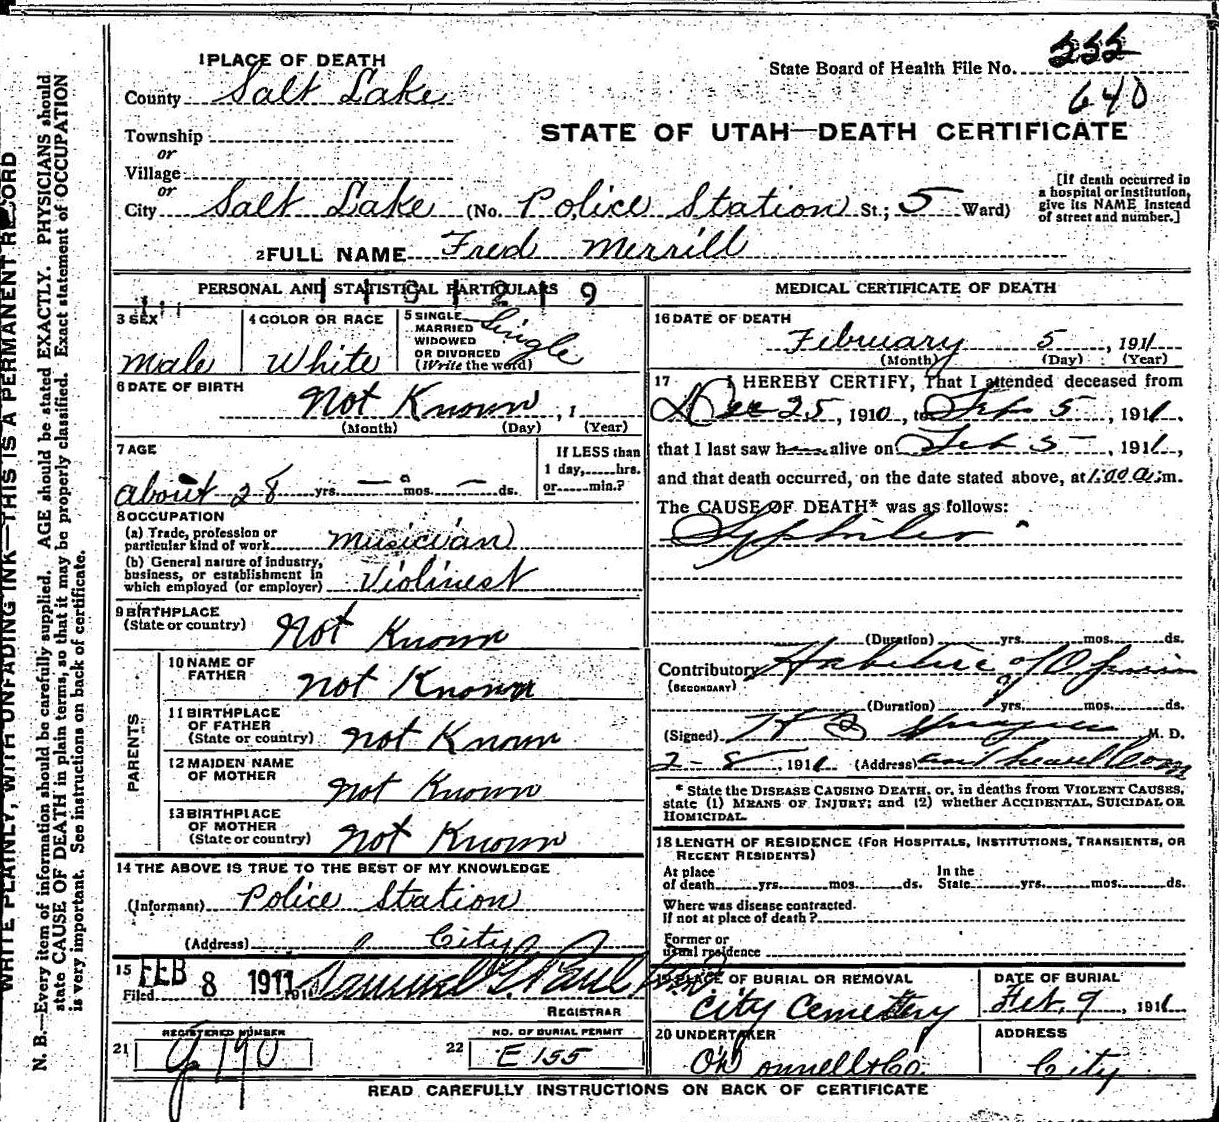 WRITE PLAINLY, WITH UNFADING INK—THIS IS A PERMANENT RECORD
N. B.—Every item of information should be carefully supplied. AGE should be stated EXACTLY. PHYSICIANS should
state CAUSE OF DEATH in plain terms, so that it may be properly classified. Exact statement of OCCUPATION
is very important. See instructions on back of certificate.
1 PLACE OF DEATH
County Salt Lake
Township
or
Village
or
City Salt Lake (No. Police Station St.; 5 Ward)
State Board of Health File No.
640
STATE OF UTAH—DEATH CERTIFICATE
[If death occurred in
a hospital or institution,
give its NAME instead
of street and number.]
2 FULL NAME Fred Merrill
PERSONAL AND STATISTICAL PARTICULARS
3 SEX
Male
4 COLOR OR RACE
White
5 SINGLE
MARRIED
WIDOWED
OR DIVORCED
(Write the word)
Single
6 DATE OF BIRTH
Not Known, 1
(Month) (Day) (Year)
7 AGE
about 28 yrs. — mos. — ds.
If LESS than
1 day, hrs.
or min.?
8 OCCUPATION
(a) Trade, profession or
particular kind of work musician
(b) General nature of industry,
business, or establishment in
which employed (or employer) Violinest
9 BIRTHPLACE
(State or country) Not Known
PARENTS
10 NAME OF
FATHER not Known
11 BIRTHPLACE
OF FATHER
(State or country) not Known
12 MAIDEN NAME
OF MOTHER not Known
13 BIRTHPLACE
OF MOTHER
(State or country) not Known
14 THE ABOVE IS TRUE TO THE BEST OF MY KNOWLEDGE
(Informant) Police Station
(Address) City
15 FEB 8 1911
Filed 191 Samuel G. Paul
REGISTRAR
REGISTERED NUMBER
21 190
NO. OF BURIAL PERMIT
22 E 155
MEDICAL CERTIFICATE OF DEATH
16 DATE OF DEATH
February 5, 1911
(Month) (Day) (Year)
17 I HEREBY CERTIFY, That I attended deceased from
Dec 25, 1910, to Feb 5, 1911,
that I last saw h alive on Feb 5, 1911,
and that death occurred, on the date stated above, at 1:00 a.m.
The CAUSE OF DEATH* was as follows:
Syphilis
(Duration) yrs. mos. ds.
Contributory Habitue of Opium
(SECONDARY)
(Duration) yrs. mos. ds.
(Signed) M. D.
2-8, 1911 (Address)
* State the DISEASE CAUSING DEATH, or, in deaths from VIOLENT CAUSES,
state (1) MEANS OF INJURY; and (2) whether ACCIDENTAL, SUICIDAL OR
HOMICIDAL.
18 LENGTH OF RESIDENCE (FOR HOSPITALS, INSTITUTIONS, TRANSIENTS, OR
RECENT RESIDENTS)
At place
of death yrs. mos. ds.
In the
State yrs. mos. ds.
Where was disease contracted.
If not at place of death?
Former or
usual residence
19 PLACE OF BURIAL OR REMOVAL
City Cemetery
DATE OF BURIAL
Feb. 9, 1911
20 UNDERTAKER
O'Donnell & Co.
ADDRESS
City
READ CAREFULLY INSTRUCTIONS ON BACK OF CERTIFICATE